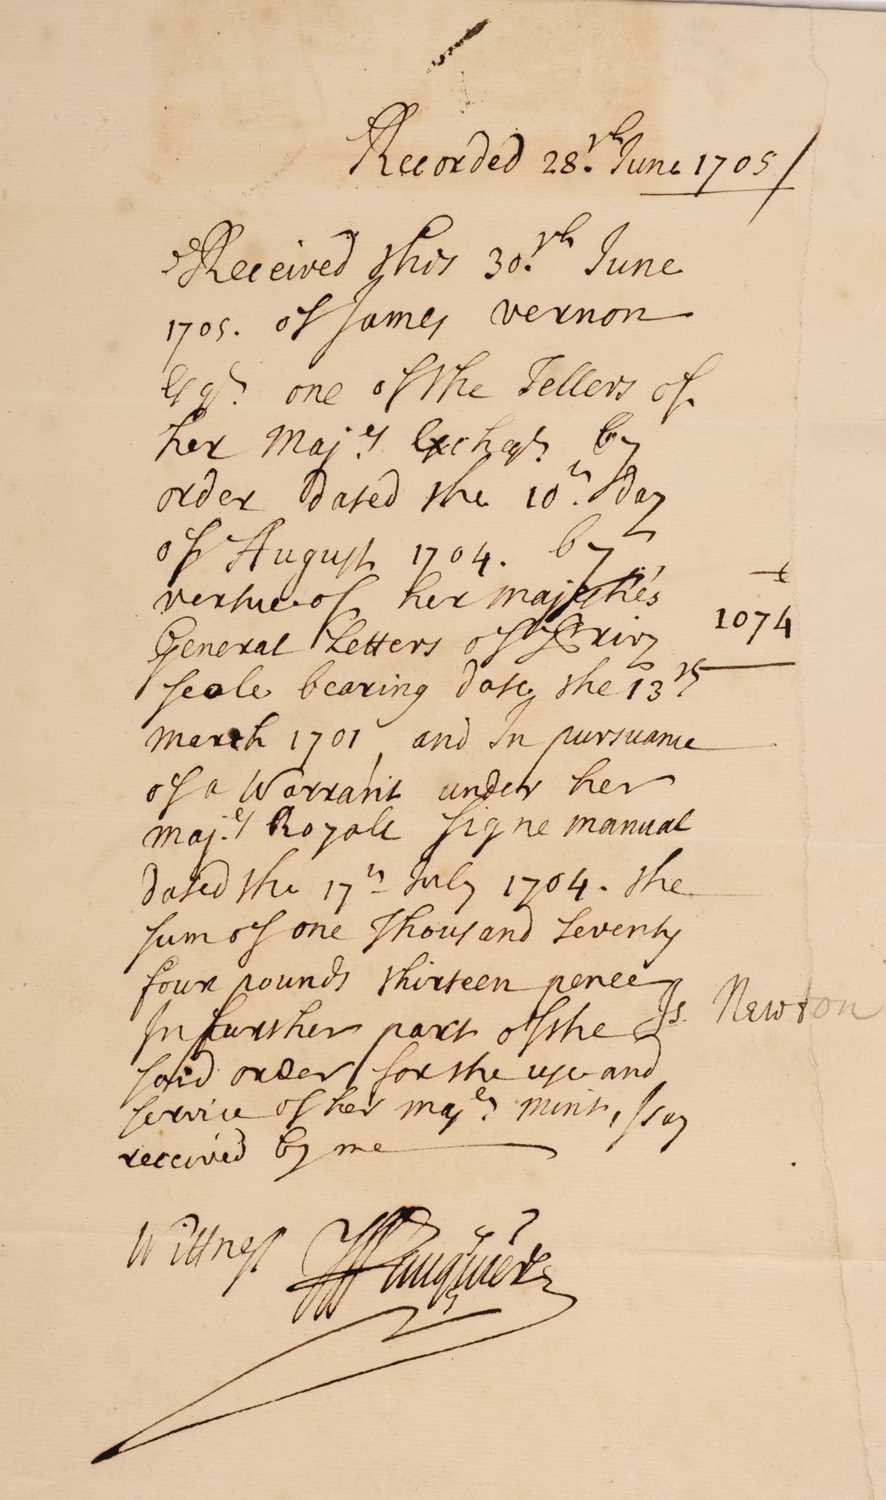 Recorded 28th June 1705/
Received this 30th June
1705. of James Vernon
Esqr. one of the Tellers of
her Maj.es Exchqr. by
order dated the 10th day
of August 1704. by
vertue of her majesties
£
1074
General Letters of Privy
seale bearing date the 13th
march 1701, and In pursuance
of a Warrant under her
maj.es Royall signe manual
dated the 17th July 1704. the
sum of one Thousand seventy
four pounds thirteen pence
In further part of the
Is. Newton
said order for the use and
service of her maj.es mint, I say
received by me
Wittness Fauquiere